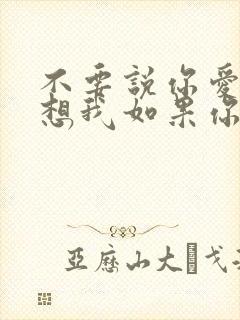 不要說你愛
想我如果你
亞歷山大 戈